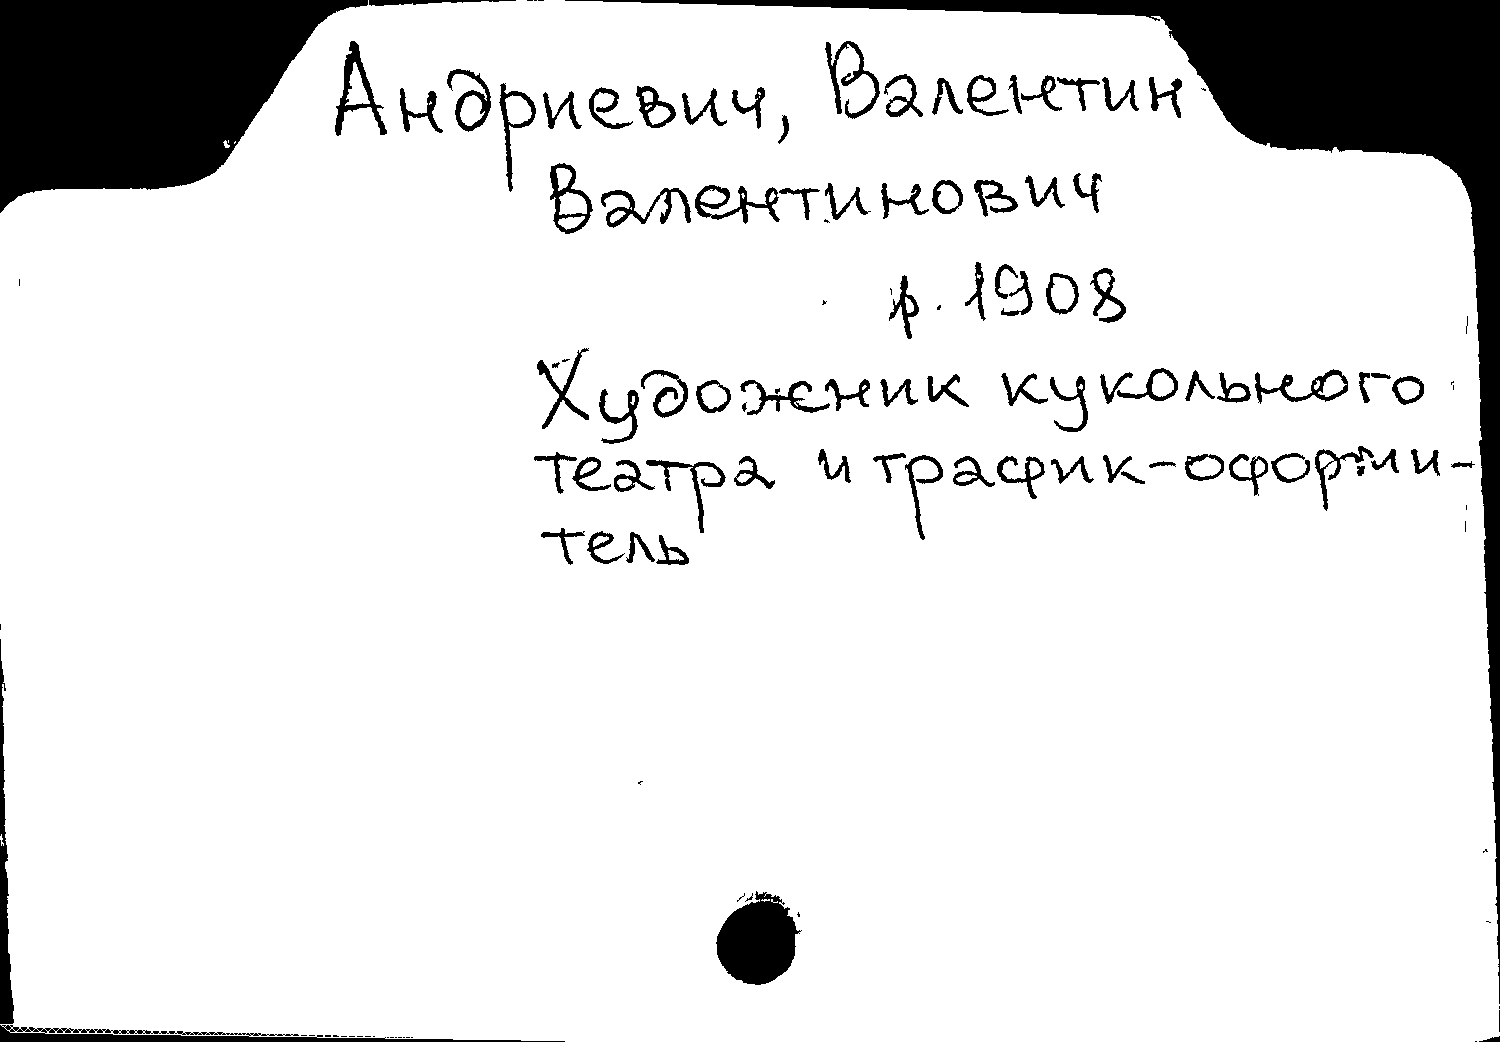 Андриевич, Валентин
Валентинович
р. 1908
Художник кукольного
театра и график-оформи-
тель